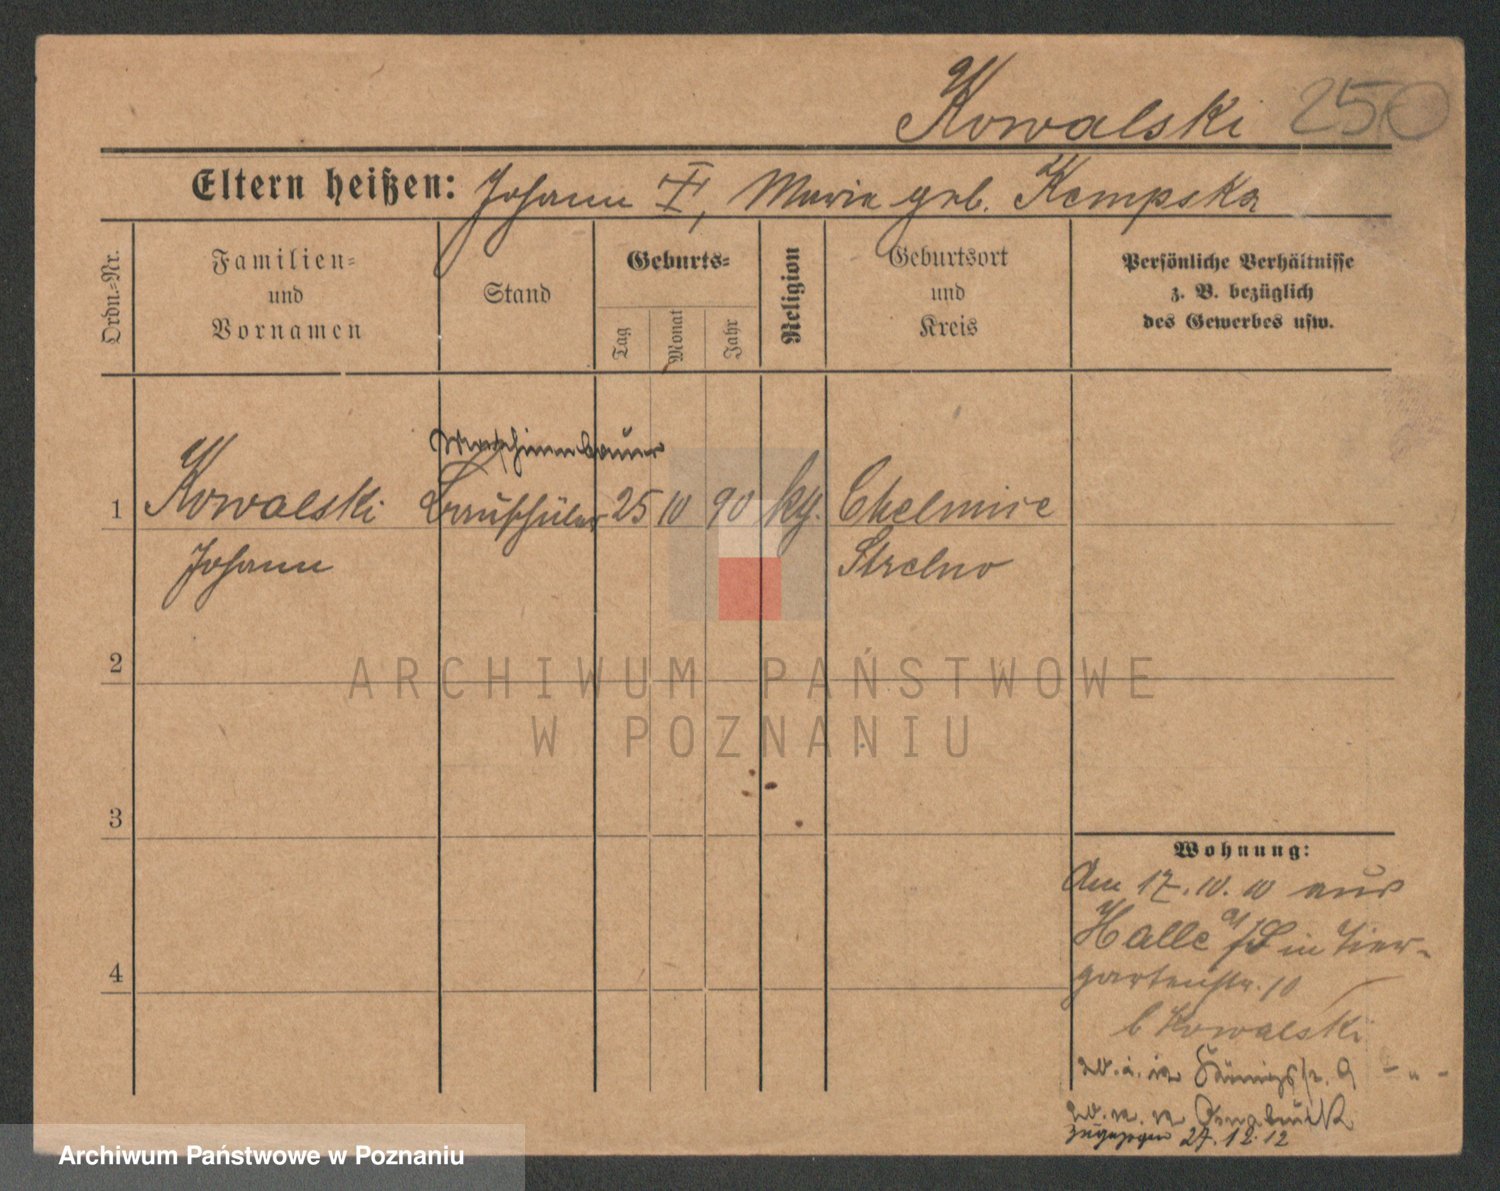 Kowalski 250
Eltern heißen: Johann II, Marie geb. Kempska
Ordn.=Nr.
Familien=
und
Vornamen
Stand
Geburts=
Tag
Monat
Jahr
Religion
Geburtsort
und
Kreis
Persönliche Verhältnisse
z. B. bezüglich
des Gewerbes usw.
Maschinenbauer
1 Kowalski Bauschüler 25 10 90 kth. Chelmice
Johann Strelno
2
3
4
Wohnung:
Am 17. 10. 10 aus
Halle a/S in Tier-
gartenstr. 10
b Kowalski
Königstr. 9 - " -
Osnabrück
zugezogen 27. 12. 12
ARCHIWUM PAŃSTWOWE
W POZNANIU
Archiwum Państwowe w Poznaniu